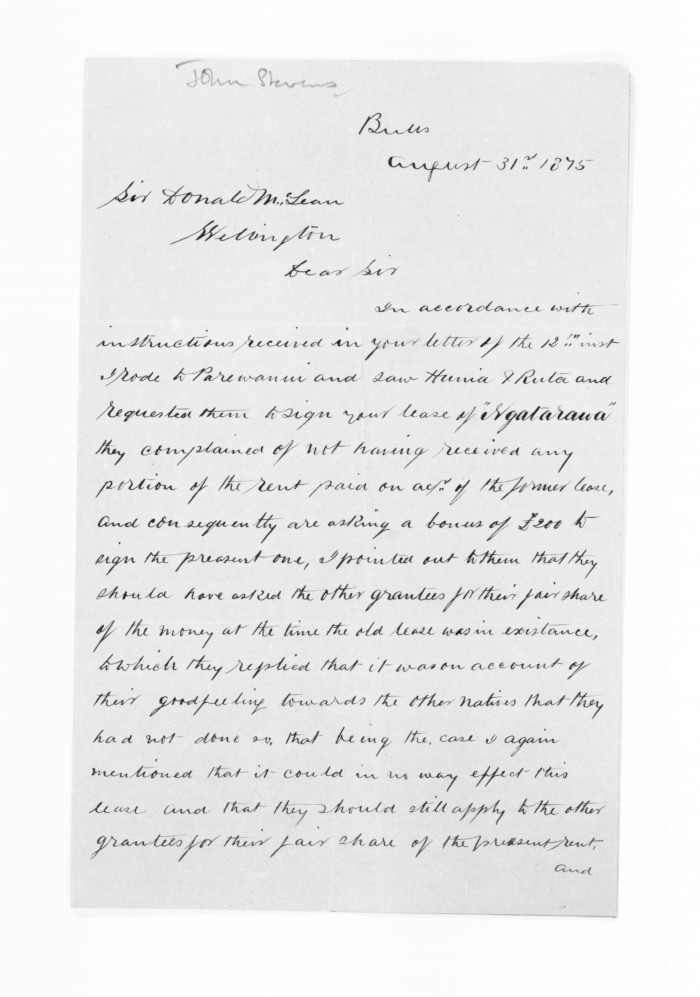 John Stevens
Bulls
August 31st 1875
Sir Donald McLean
Wellington
Dear Sir
In accordance with
instructions received in your letter of the 12th inst
I rode to Parewanui and saw Hunia & Ruta and
requested them to sign your lease of "Ngatarawa"
they complained of not having received any
portion of the rent paid on acct. of the former lease,
and consequently are asking a bonus of £200 to
sign the preasent one, I pointed out to them that they
should have asked the other grantees for their fair share
of the money at the time the old lease was in existance,
to which they replied that it was on account of
their good feeling towards the other natives that they
had not done so, that being the case I again
mentioned that it could in no way effect this
lease and that they should still apply to the other
grantees for their fair share of the preasent rent.
And